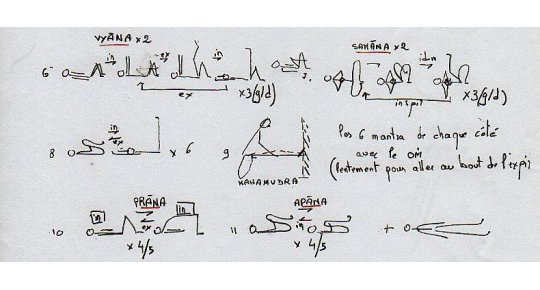 VYĀNA x2
SAMĀNA x2
6 in ex in 7. idn
ex x3(g/d) inspi x3(g/d)
8 in ex x 6 9 MAHAMUDRA
Les 6 mantra de chaque côté
avec le om
(lentement pour aller au bout de l'expi)
PRĀNA APĀNA
10 in ex in x 4/5
11 in x 4/5 +